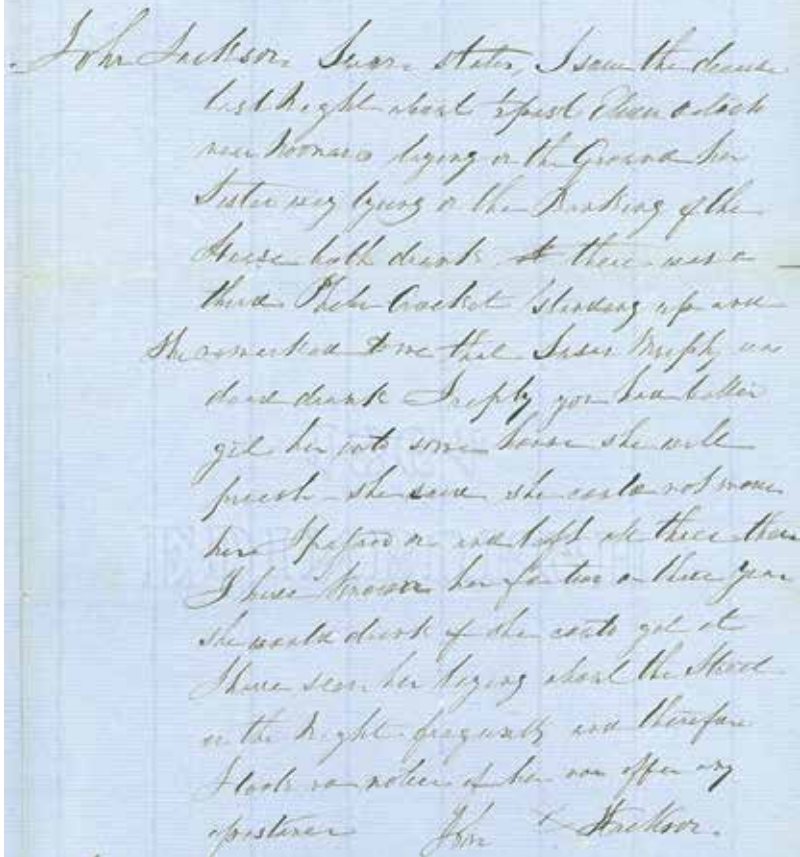 John Jackson Sworn states, I saw the deceased
last Night about ½ past Eleven oclock
near laying on the Ground her
Sister was lying on the Banking of the
House both drunk there was a
third Phebe Crocket standing up and
She remarked to me that Susan Murphy was
dead drunk I reply you had better
get her into some house she will
perish she said she could not move
her I passed on and left all three there
I have known her for two or three year
she would drink if she could get it
I have seen her laying about the Street
in the Night frequently and therefore
I took no notice of her nor offer any
John X Jackson.